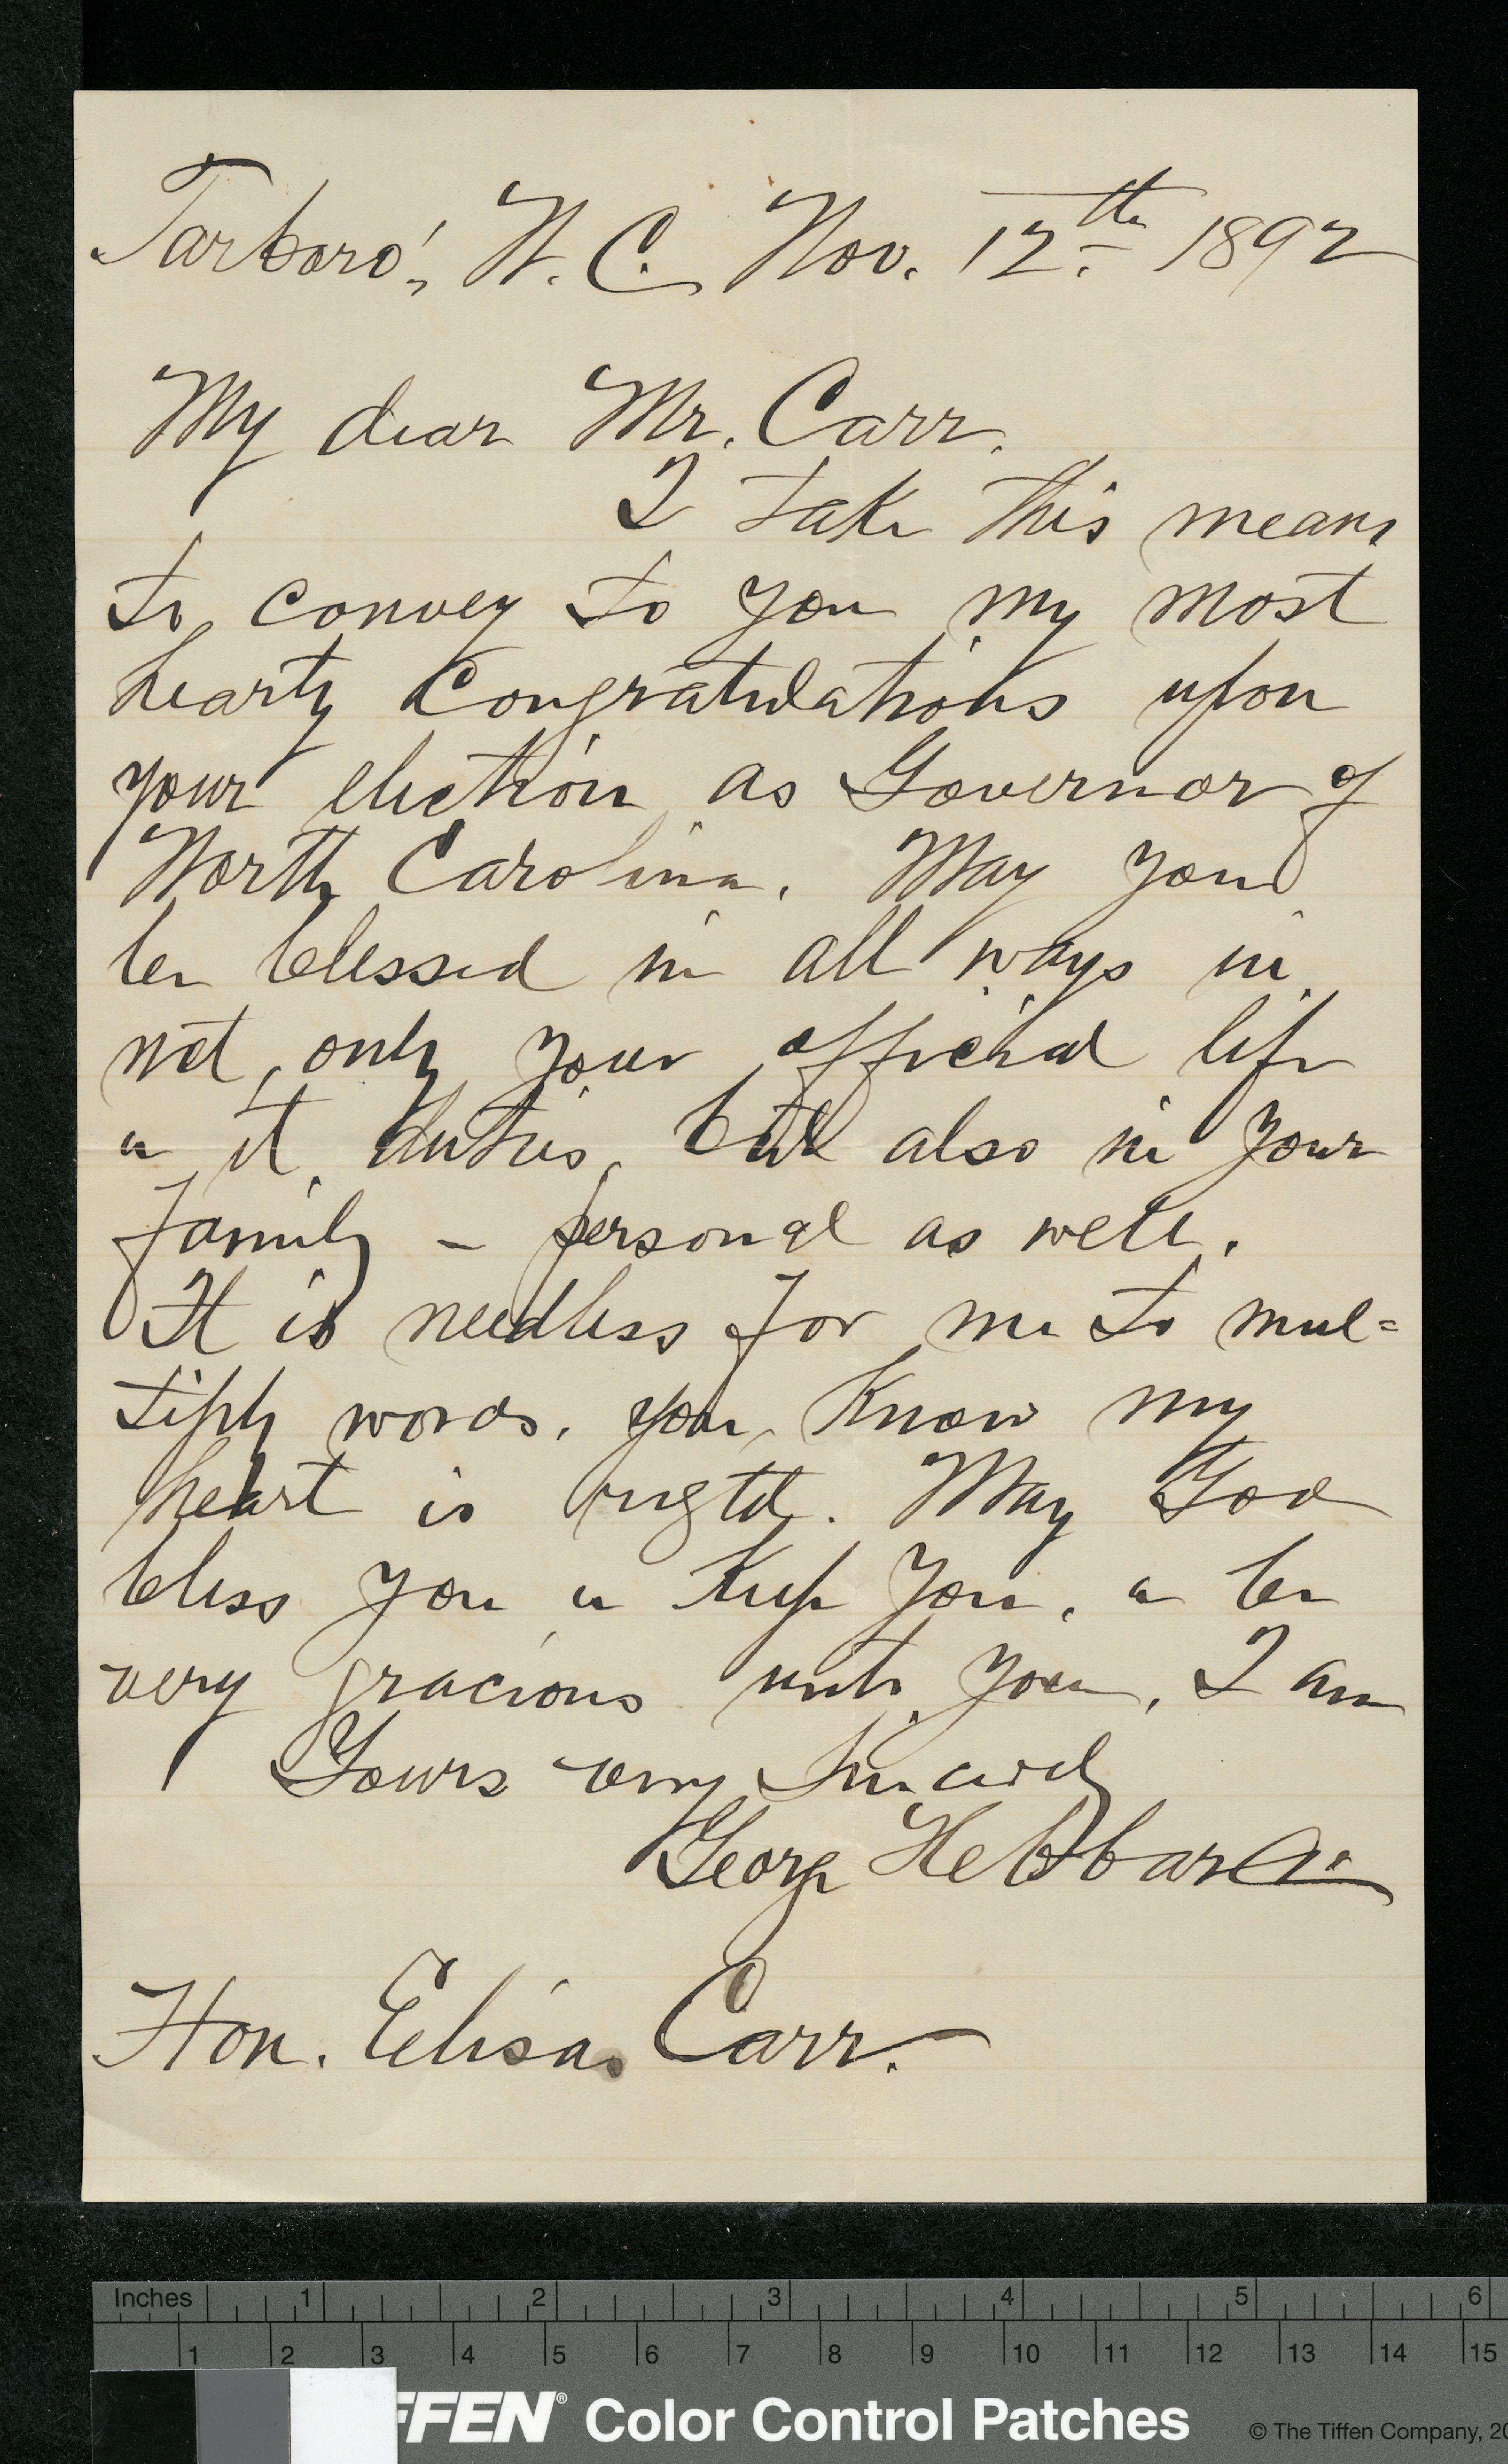 Tarboro', N. C. Nov. 12th 1892
My dear Mr. Carr.
I take this means
to convey to you my most
hearty Congratulations upon
your election as Governor of
North Carolina. May you
be blessed in all ways in
not only your official life
& it duties, but also in your
family - personal as well.
It is needless for me to mul=
tiply words. you know my
heart is right. May God
bless you & keep you, & be
very gracious unto you, I am
Yours very sincerely
George
Hon. Elisas Carr.
Inches 1 2 3 4 5 6
1 2 3 4 5 6 7 8 9 10 11 12 13 14 15
FFEN® Color Control Patches
© The Tiffen Company, 20